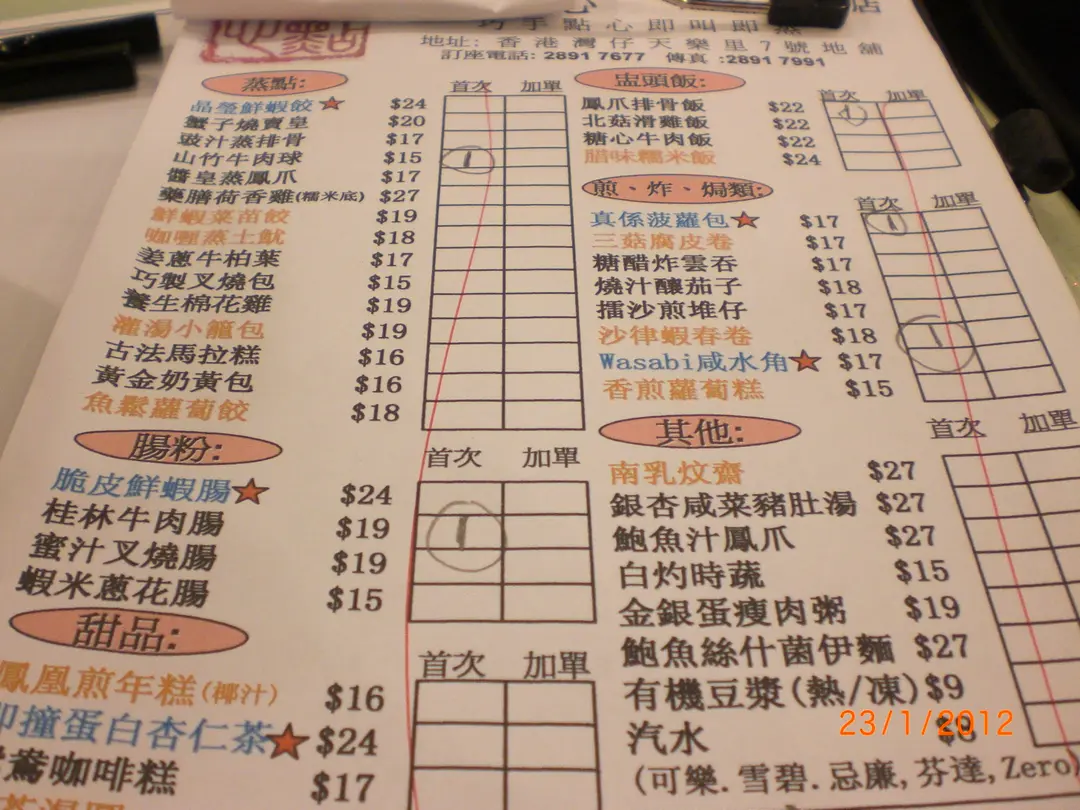 心點
心
店
巧手點心即叫即蒸
地址: 香港灣仔天樂里7號地舖
訂座電話: 2891 7677 傳真 :2891 7991
蒸點:
首次 加單
晶瑩鮮蝦餃★ $24
蟹子燒賣皇 $20
豉汁蒸排骨 $17
山竹牛肉球 $15 1
醬皇蒸鳳爪 $17
藥膳荷香雞(糯米底) $27
鮮蝦菜苗餃 $19
咖喱蒸土魷 $18
姜蔥牛柏葉 $17
巧製叉燒包 $15
養生棉花雞 $19
灌湯小籠包 $19
古法馬拉糕 $16
黃金奶黃包 $16
魚鬆蘿蔔餃 $18
腸粉:
首次 加單
脆皮鮮蝦腸★ $24
桂林牛肉腸 $19 1
蜜汁叉燒腸 $19
蝦米蔥花腸 $15
甜品:
首次 加單
鳳凰煎年糕(椰汁) $16
即撞蛋白杏仁茶★ $24
鴦咖啡糕 $17
茶湯圓
盅頭飯:
首次 加單
鳳爪排骨飯 $22 1
北菇滑雞飯 $22
糖心牛肉飯 $22
腊味糯米飯 $24
煎、炸、焗類:
首次 加單
真係菠蘿包★ $17 1
三菇腐皮卷 $17
糖醋炸雲吞 $17
燒汁釀茄子 $18
擂沙煎堆仔 $17
沙律蝦春卷 $18 1
Wasabi咸水角★ $17
香煎蘿蔔糕 $15
其他:
首次 加單
南乳炆齋 $27
銀杏咸菜豬肚湯 $27
鮑魚汁鳳爪 $27
白灼時蔬 $15
金銀蛋瘦肉粥 $19
鮑魚絲什菌伊麵 $27
有機豆漿(熱/凍) $9
汽水 $8
(可樂.雪碧.忌廉,芬達,Zero)
23/1/2012